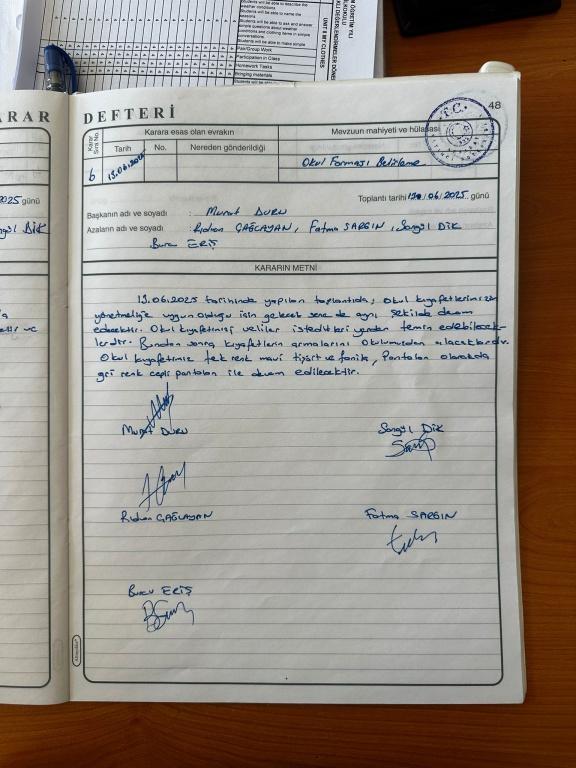 Students will be able to describe the
weather conditions
Students will be able to name the
seasons
Students will be able to ask and answer
simple questions about weather
conditions and clothing items in simple
conversations.
UNIT 8 MY CLOTHES
Students will be able to make simple
Pair/Group Work
Participation in Class
Homework Tasks
Bringing materials
ARAR
DEFTERİ
48
T.C.
Karar Sıra No.
Karara esas olan evrakın
Mevzuun mahiyeti ve hülasası
Tarih
No.
Nereden gönderildiği
6
13.06.2025
Okul Forması Belirleme
Toplantı tarihi 06/2025.. günü
Başkanın adı ve soyadı : Murat DURU
Azaların adı ve soyadı : Rıdvan ÇAĞLAYAN, Fatma SARGIN, Songül Dik
Burcu ERİŞ
KARARIN METNİ
13.06.2025 tarihinde yapılan toplantıda; Okul kıyafetlerimizin
yönetmeliğe uygun olduğu için gelecek sene de aynı şekilde devam
edecektir. Okul kıyafetimizi veliler istedikleri yerden temin edebilecek-
lerdir. Bundan sonra kıyafetlerin armalarını Okulumuzdan alacaklardır.
Okul kıyafetimiz tek renk mavi tişört ve fanila, Pantolon olarakda
gri renk cepli pantolon ile devam edilecektir.
Murat DURU
Songül Dik
Rıdvan ÇAĞLAYAN
Fatma SARGIN
Burcu ERİŞ
2025 günü